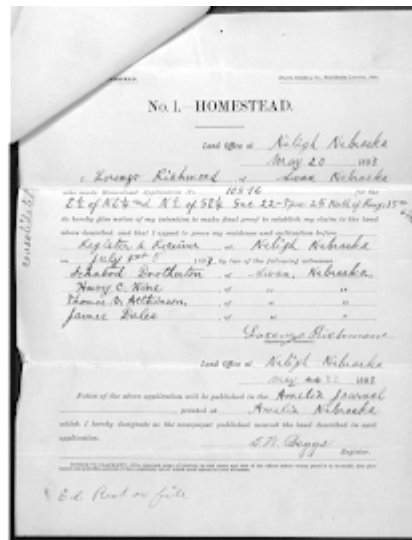 No. 1.—HOMESTEAD.
Land Office at Neligh Nebraska
May 20 1893
I, Lorenzo Richmond of Swan Nebraska
who made Homestead Application No. 10876 for the
E½ of NE¼ and N½ of SE¼ Sec 22 Twp 25 North of Range 15
do hereby give notice of my intention to make final proof to establish my claim to the land
above described, and that I expect to prove my residence and cultivation before
Register & Receiver at Neligh Nebraska
on July 1893, by two of the following witnesses:
of Swan, Nebraska
Harry C. Wine of " "
Thomas D. of " "
James Dales of " "
Lorenzo Richmond
Land Office at Neligh Nebraska
May 1893
Notice of the above application will be published in the Amelia Journal
printed at Amelia Nebraska
which I hereby designate as the newspaper published nearest the land described in said
application.
S. R. Beggs
Register.
consolidated
Ed Rect on file